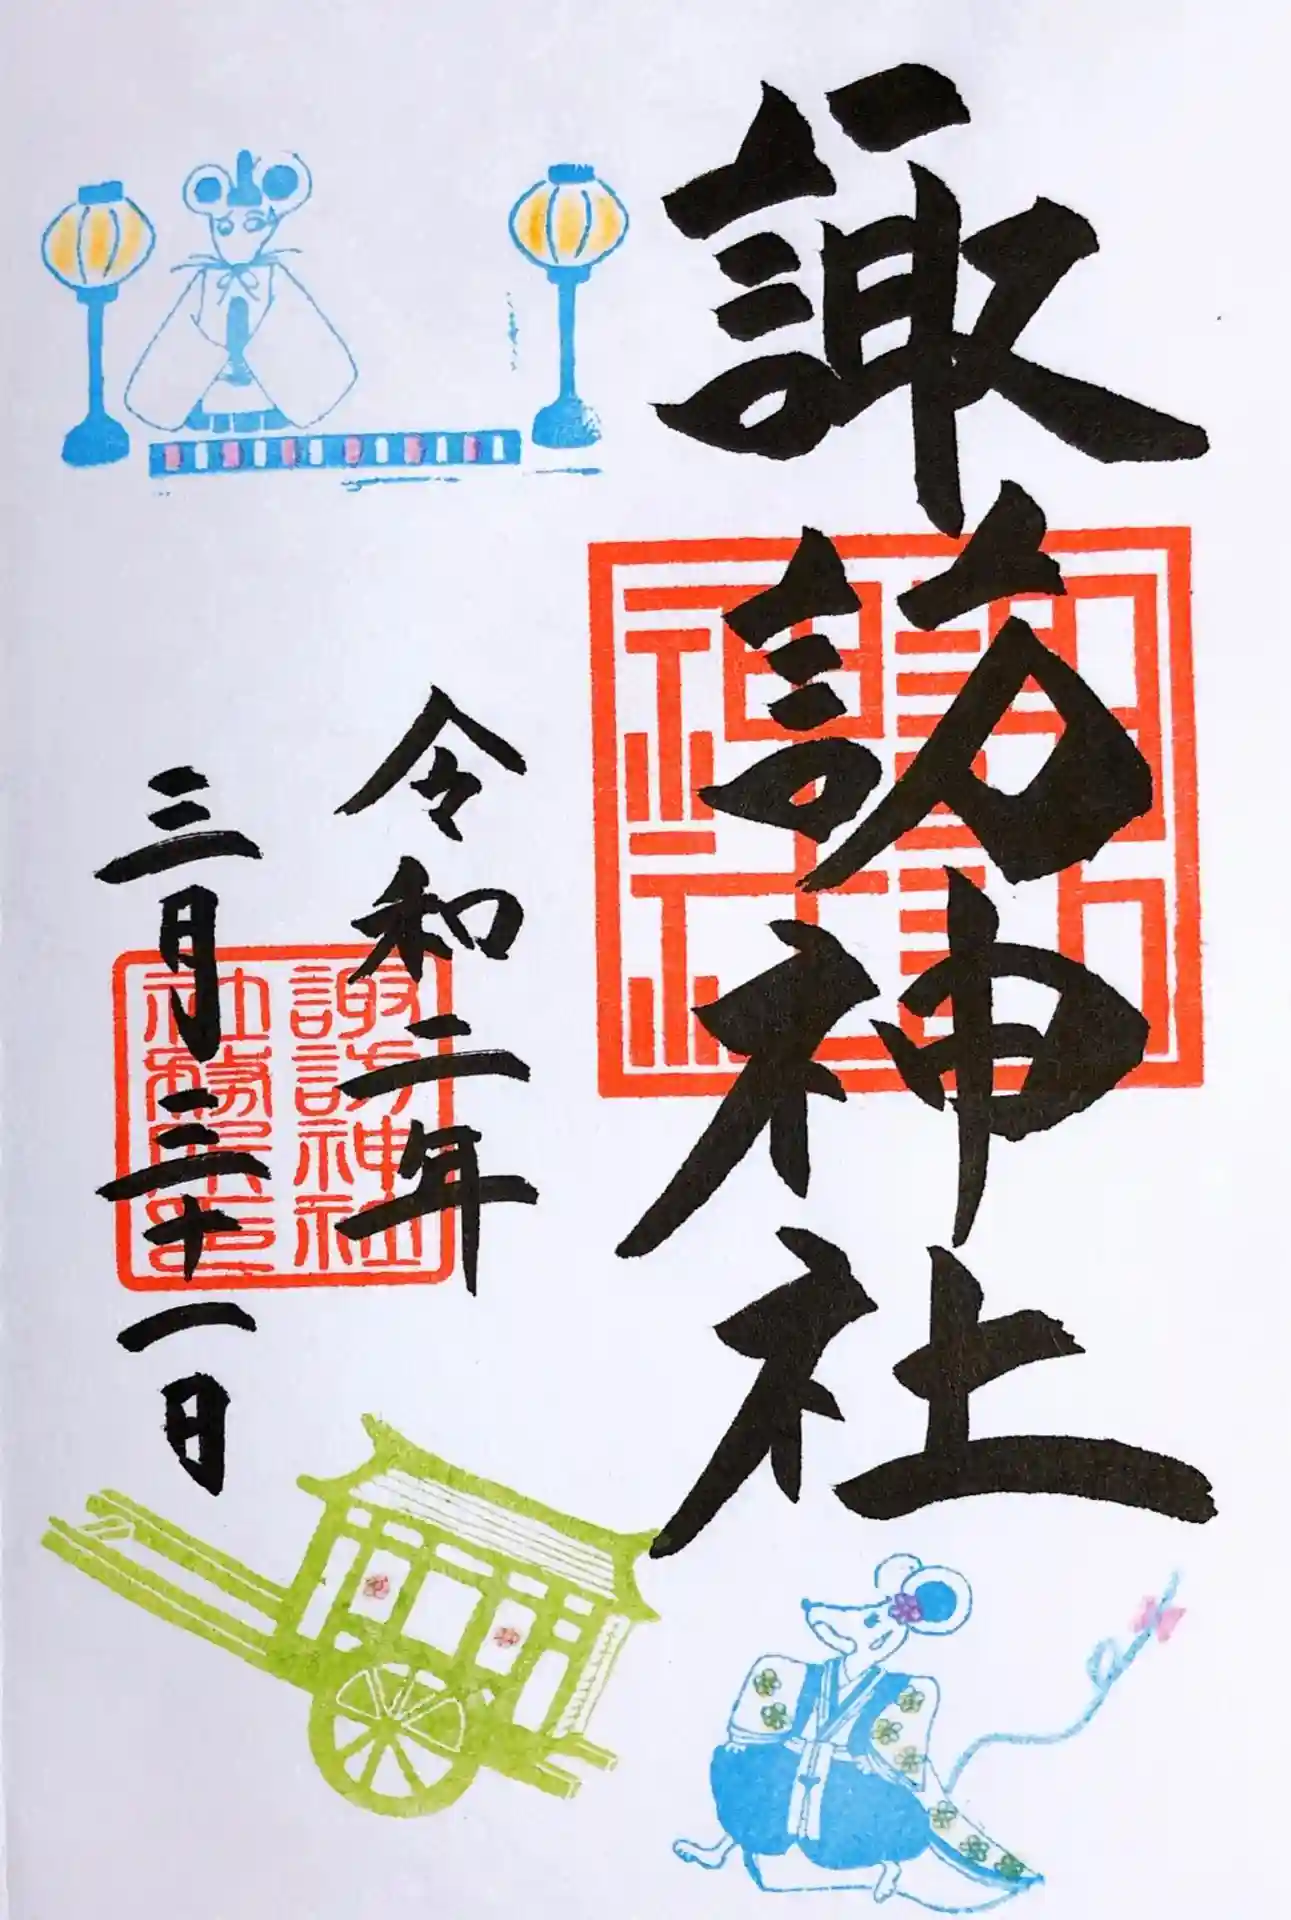 諏訪神社
諏訪
神社
令和二年
諏訪神社
三月三十一日
社務所印